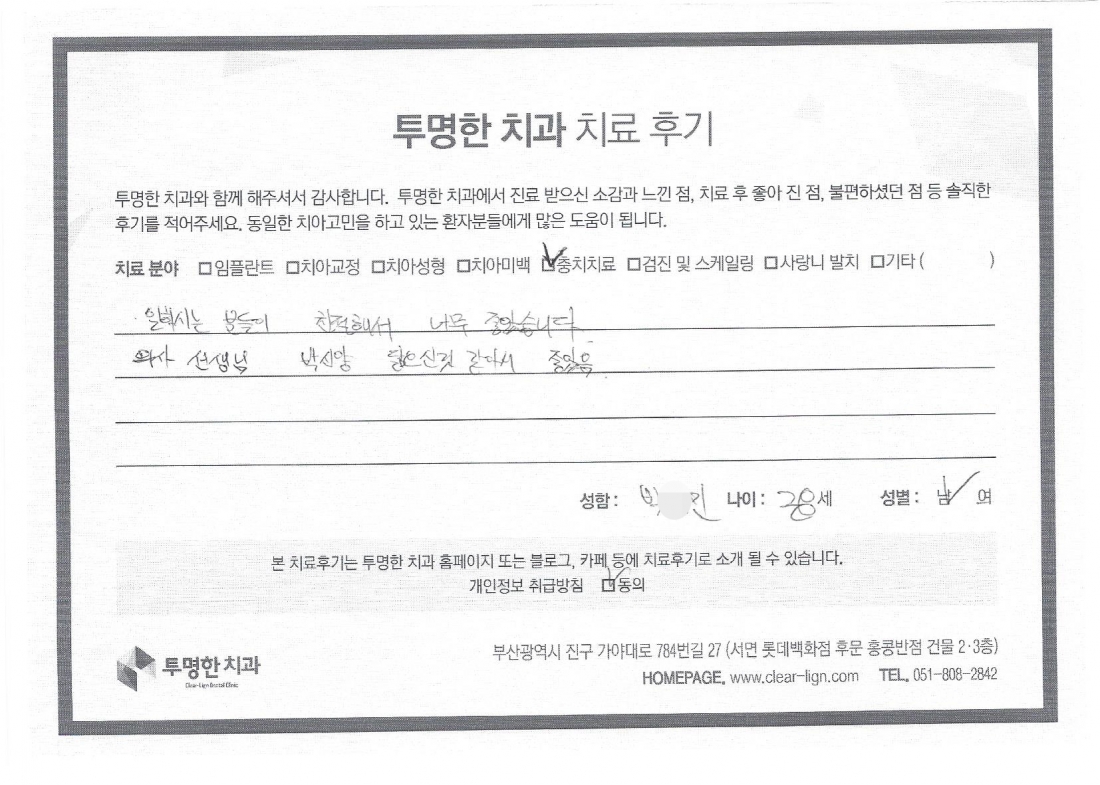 투명한 치과 치료 후기
투명한 치과와 함께 해주셔서 감사합니다. 투명한 치과에서 진료 받으신 소감과 느낀 점, 치료 후 좋아 진 점, 불편하셨던 점 등 솔직한
후기를 적어주세요. 동일한 치아고민을 하고 있는 환자분들에게 많은 도움이 됩니다.
치료 분야 □임플란트 □치아교정 □치아성형 □치아미백 ☑충치치료 □검진 및 스케일링 □사랑니 발치 □기타 ( )
일하시는 분들이 친절해서 너무 좋았습니다
의사 선생님 박신양 닮으신것 같아서 좋았음
성함 : 박 진 나이 : 세 성별 : 남✓ 여
본 치료후기는 투명한 치과 홈페이지 또는 블로그, 카페 등에 치료후기로 소개 될 수 있습니다.
개인정보 취급방침 ☑동의
투명한 치과
Clear-Lign Dental Clinic
부산광역시 진구 가야대로 784번길 27 (서면 롯데백화점 후문 홍콩반점 건물 2·3층)
HOMEPAGE. www.clear-lign.com TEL. 051-808-2842